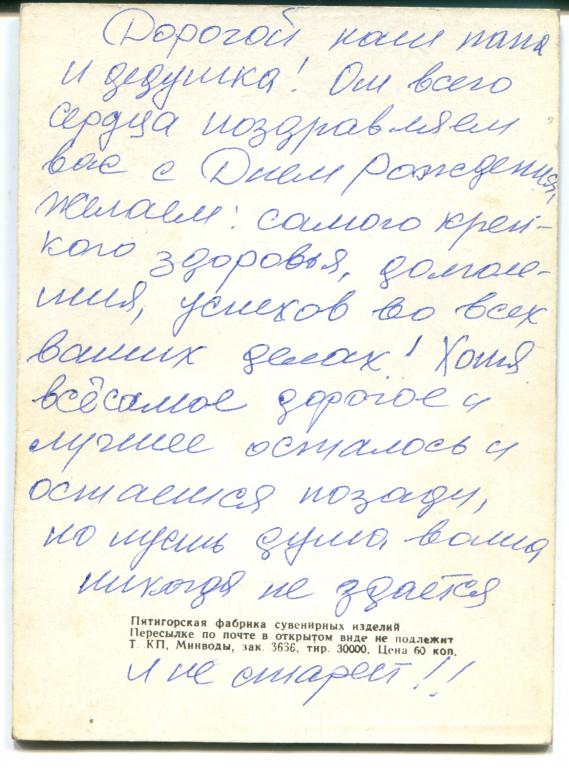 Дорогой наш папа
и дедушка! От всего
сердца поздравляем
вас с Днем Рождения,
желаем: самого креп-
кого здоровья, долголе-
тия, успехов во всех
ваших делах! Хотя
всё самое дорогое и
лучшее осталось и
остается позади,
но пусть душа ваша
никогда не здается
Пятигорская фабрика сувенирных изделий
Пересылке по почте в открытом виде не подлежит
Т. КП, Минводы, зак. 3636, тир. 30000. Цена 60 коп.
и не стареет!!